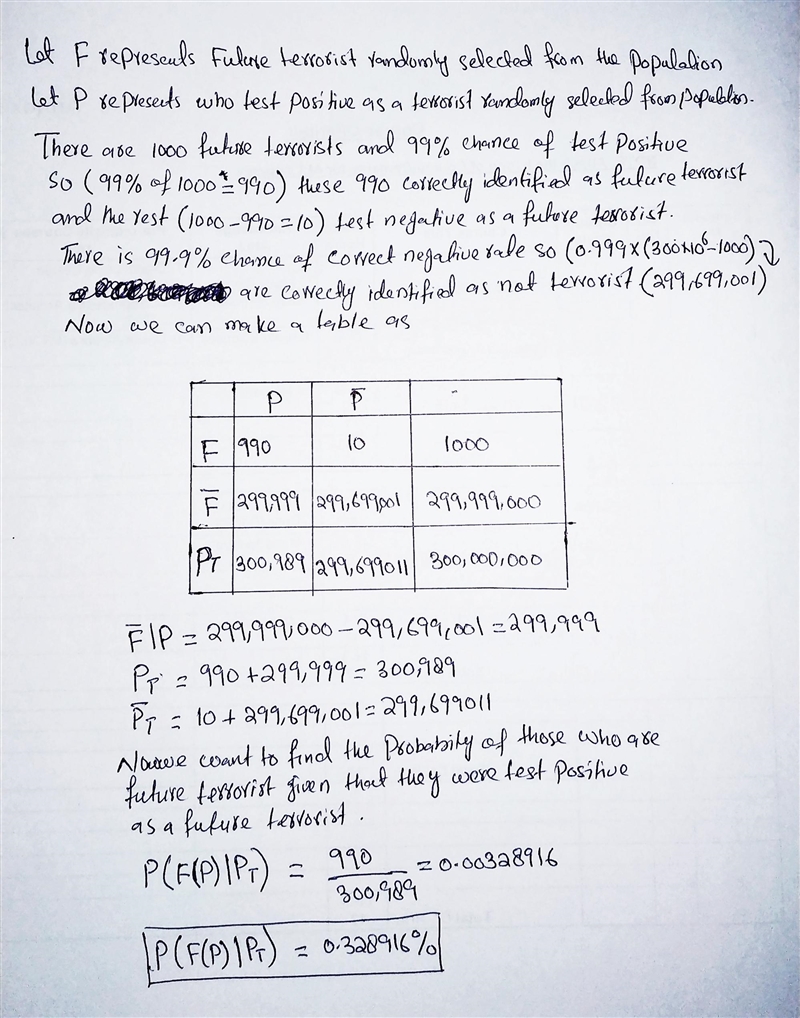 Let F represents Future terrorist randomly selected from the population
Let P represents who test positive as a terrorist randomly selected from population.
There are 1000 future terrorists and 99% chance of test Positive
So (99% of 1000 = 990) these 990 correctly identified as future terrorist
and the rest (1000-990=10) test negative as a future terrorist.
There is 99.9% chance of correct negative rate so (0.999×(300×10⁶-1000)
are correctly identified as not terrorist (299,699,001)
Now we can make a table as
P P̄ -
F 990 10 1000
F̄ 299,999 299,699,001 299,999,000
PT 300,989 299,699011 300,000,000
F̄|P = 299,999,000 - 299,699,001 = 299,999
PT = 990 + 299,999 = 300,989
P̄T = 10 + 299,699,001 = 299,699011
Now we want to find the Probability of those who are
future terrorist given that they were test Positive
as a future terrorist.
P(F(P)|PT) = 990/300,989 = 0.00328916
P(F(P)|PT) = 0.328916%